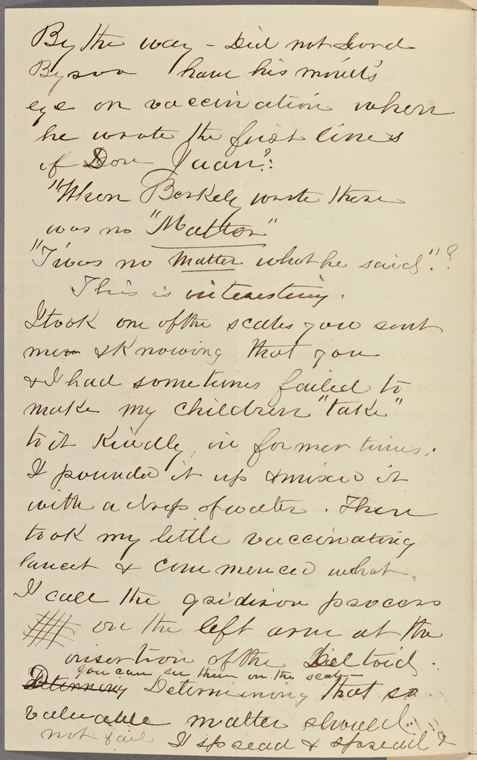 By the way - Did not Lord
Byron have his mind's
eye on vaccination when
he wrote the first lines
of Don Juan?:
"When Berkely wrote there
was no "Matter"
"T'was no matter what he said"?
This is interesting.
I took one of the scabs you sent
me & knowing that you
& I had sometimes failed to
make my children "take"
to it kindly in former times.
I pounded it up & mixed it
with a drop of water. Then
took my little vaccinating
lancet & commenced what
I call the gridiron process
on the left arm at the
insertion of the Deltoid.
you can see them on the
Determining Determining that so
valuable matter should
not fail I spread & spread